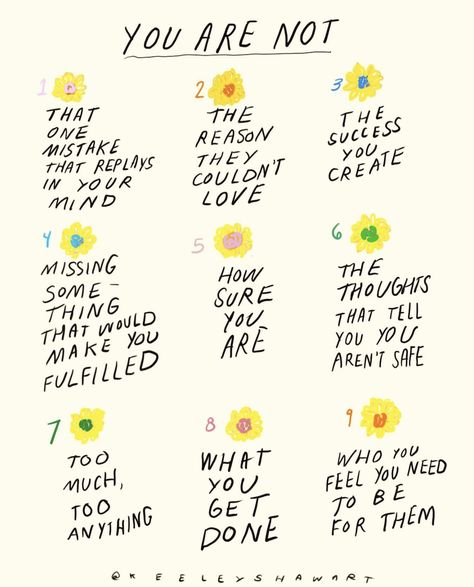 YOU ARE NOT
1
THAT
ONE
MISTAKE
THAT REPLAYS
IN YOUR
MIND
2
THE
REASON
THEY
COULDN'T
LOVE
3
THE
SUCCESS
YOU
CREATE
4
MISSING
SOME-
THING
THAT WOULD
MAKE YOU
FULFILLED
5
HOW
SURE
YOU
ARE
6
THE
THOUGHTS
THAT TELL
YOU YOU
AREN'T SAFE
7
TOO
MUCH,
TOO
ANYTHING
8
WHAT
YOU
GET
DONE
9
WHO YOU
FEEL YOU NEED
TO BE
FOR THEM
@KEELEYSHAWART